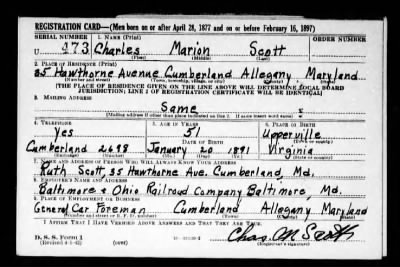 REGISTRATION CARD—(Men born on or after April 28, 1877 and on or before February 16, 1897)
SERIAL NUMBER 1. NAME (Print) ORDER NUMBER
U 273 Charles Marion Scott
(First) (Middle) (Last)
2. PLACE OF RESIDENCE (Print)
35 Hawthorne Avenue Cumberland Allegany Maryland
(Number and street) (Town, township, village, or city) (County) (State)
[THE PLACE OF RESIDENCE GIVEN ON THE LINE ABOVE WILL DETERMINE LOCAL BOARD
JURISDICTION; LINE 2 OF REGISTRATION CERTIFICATE WILL BE IDENTICAL]
3. MAILING ADDRESS
Same
[Mailing address if other than place indicated on line 2. If same insert word same]
4. TELEPHONE 5. AGE IN YEARS 6. PLACE OF BIRTH
Yes 51 Upperville
DATE OF BIRTH (Town or county)
Cumberland 2698 January 20 1891 Virginia
(Exchange) (Number) (Mo.) (Day) (Yr.) (State or country)
7. NAME AND ADDRESS OF PERSON WHO WILL ALWAYS KNOW YOUR ADDRESS
Ruth Scott, 35 Hawthorne Ave. Cumberland, Md.
8. EMPLOYER'S NAME AND ADDRESS
Baltimore & Ohio Railroad Company Baltimore, Md.
9. PLACE OF EMPLOYMENT OR BUSINESS
General Car Foreman Cumberland Allegany Maryland
(Number and street or R. F. D. number) (Town) (County) (State)
I AFFIRM THAT I HAVE VERIFIED ABOVE ANSWERS AND THAT THEY ARE TRUE.
D. S. S. Form 1
(Revised 4-1-42) (over) Chas. M. Scott
(Registrant's signature)